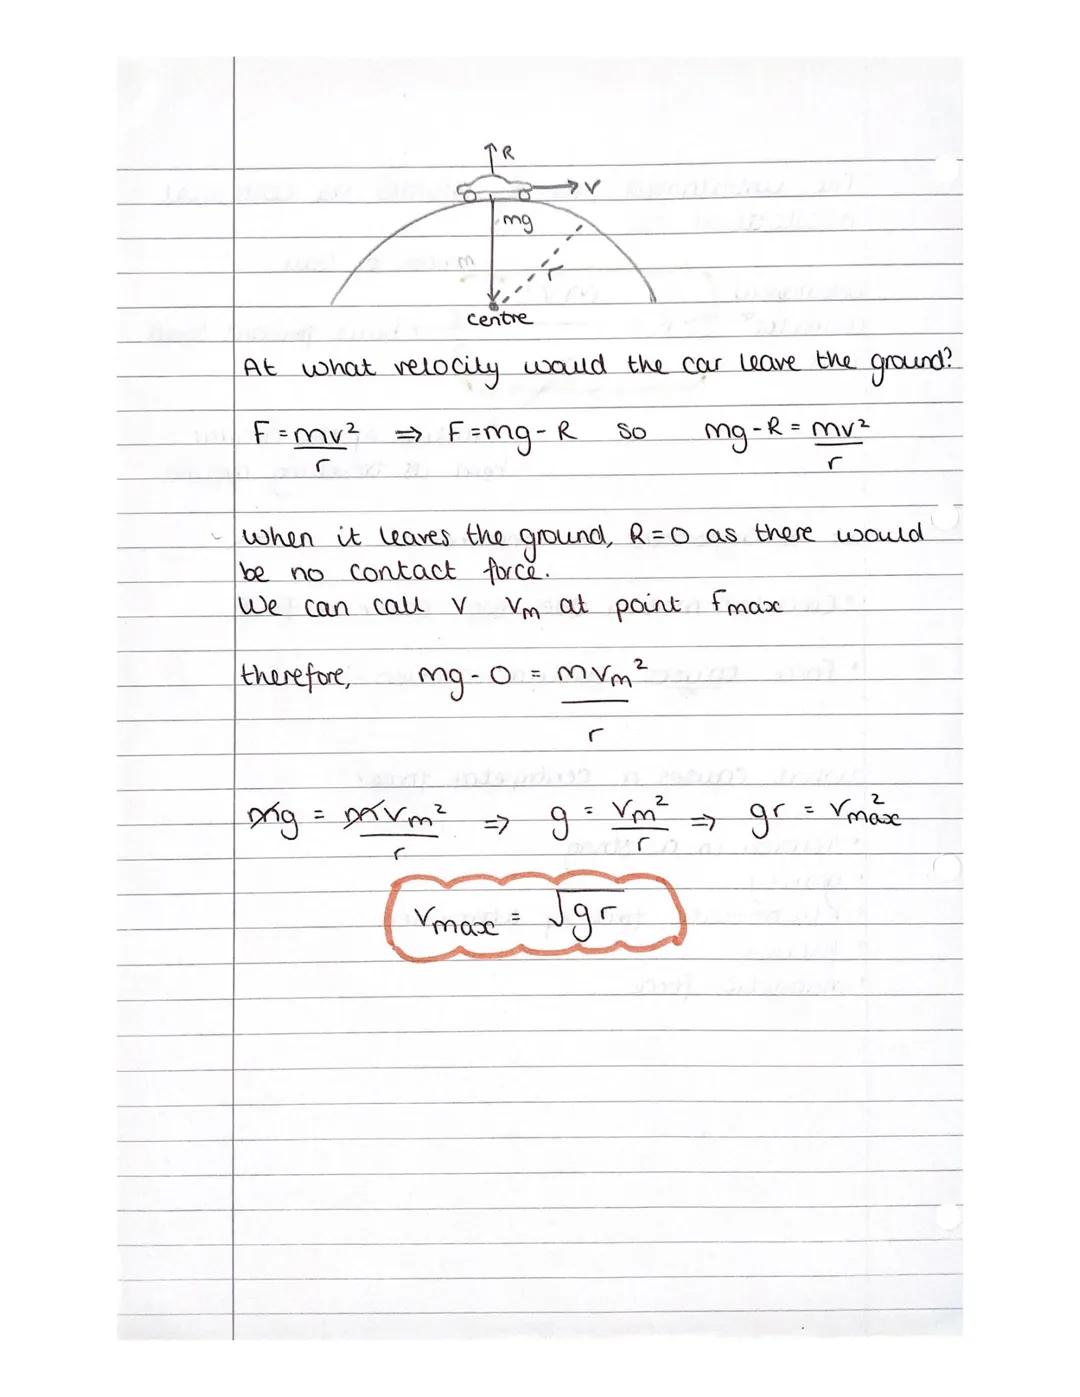 R
v
mg
r
centre
At what velocity would the car leave the ground?
F = mv²/r ⇒ F = mg - R so mg - R = mv²/r
When it leaves the ground, R = 0 as there would
be no contact force.
We can call v Vm at point Fmax
therefore, mg - 0 = mvm²/r
mg = mvm²/r ⇒ g = Vm²/r ⇒ gr = Vmax²
Vmax = √gr